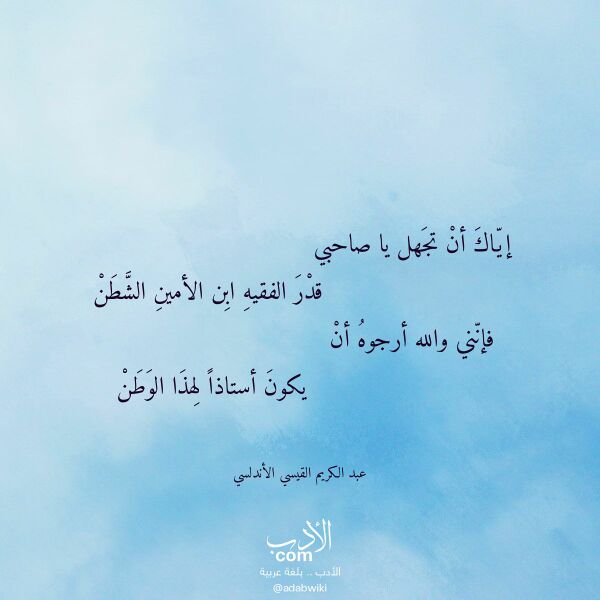 إيّاكَ أنْ تجَهل يا صاحبي
قدْرَ الفقيهِ ابِن الأمينِ الشَّطَنْ
فإنّني والله أرجوهُ أنْ
يكونَ أستاذاً لِهذَا الوَطَنْ
عبد الكريم القيسي الأندلسي
الأدب
com
الأدب .. بلغة عربية
@adabwiki